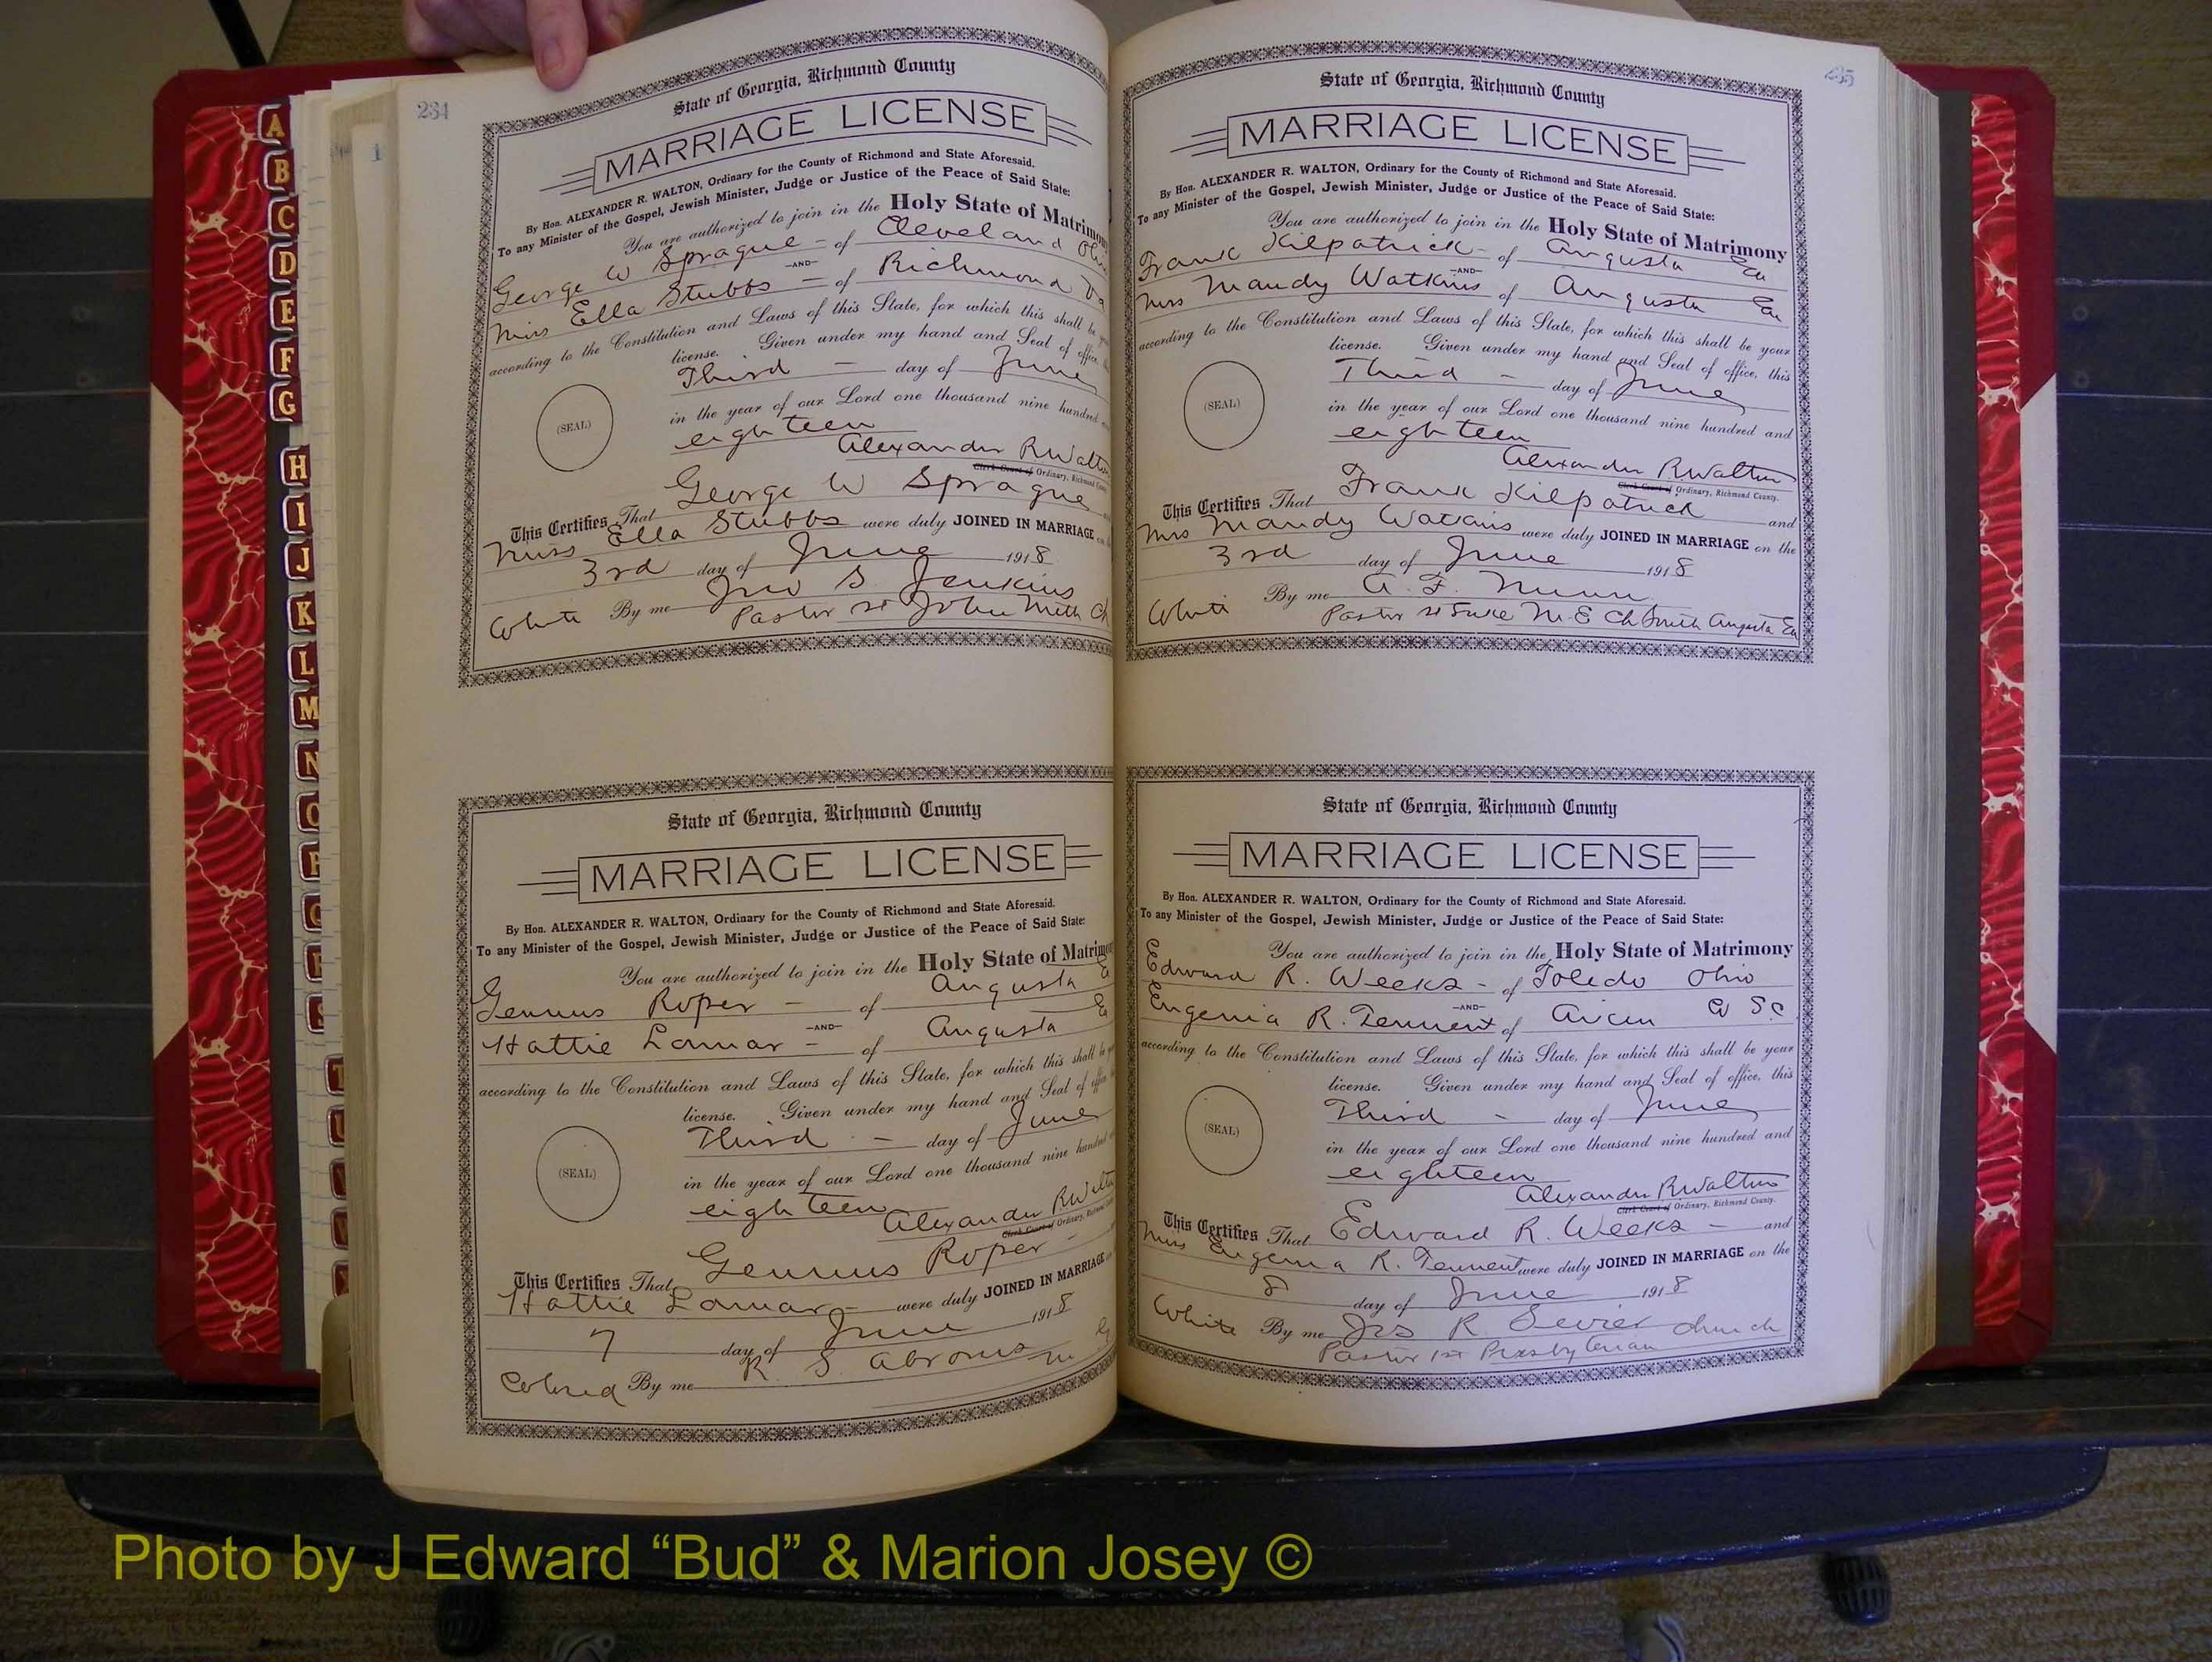 A
B
C
D
E
F
G
H
I
J
K
L
M
N
O
P
Q
R
S
T
U
V
W
234
State of Georgia, Richmond County
MARRIAGE LICENSE
By Hon. ALEXANDER R. WALTON, Ordinary for the County of Richmond and State Aforesaid.
To any Minister of the Gospel, Jewish Minister, Judge or Justice of the Peace of Said State:
You are authorized to join in the Holy State of Matrimony
George W Sprague - of Cleveland Ohio
-AND-
Miss Ella Stubbs - of Richmond Va
according to the Constitution and Laws of this State, for which this shall be your
license. Given under my hand and Seal of office, this
Third - day of June
(SEAL)
in the year of our Lord one thousand nine hundred and
eighteen
Alexander R Walton
Clerk Court of Ordinary, Richmond County.
This Certifies That George W Sprague
Miss Ella Stubbs were duly JOINED IN MARRIAGE on
3rd day of June 1918
White By me Jno S. Jenkins
Pastor St John Meth Ch
State of Georgia, Richmond County
MARRIAGE LICENSE
By Hon. ALEXANDER R. WALTON, Ordinary for the County of Richmond and State Aforesaid.
To any Minister of the Gospel, Jewish Minister, Judge or Justice of the Peace of Said State:
You are authorized to join in the Holy State of Matrimony
Roper - of Augusta
-AND-
Hattie Lamar - of Augusta Ga
according to the Constitution and Laws of this State, for which this shall be your
license. Given under my hand and Seal of office
Third - day of June
(SEAL)
in the year of our Lord one thousand nine hundred
eighteen
Alexander R Walton
Clerk Court of Ordinary, Richmond
This Certifies That Roper -
Hattie Lamar - were duly JOINED IN MARRIAGE
7 day of June 1918
Colored By me R. S. Abrams M G
235
State of Georgia, Richmond County
MARRIAGE LICENSE
By Hon. ALEXANDER R. WALTON, Ordinary for the County of Richmond and State Aforesaid.
To any Minister of the Gospel, Jewish Minister, Judge or Justice of the Peace of Said State:
You are authorized to join in the Holy State of Matrimony
Frank Kilpatrick - of Augusta Ga
-AND-
Mrs Mandy Watkins of Augusta Ga
according to the Constitution and Laws of this State, for which this shall be your
license. Given under my hand and Seal of office, this
Third - day of June
(SEAL)
in the year of our Lord one thousand nine hundred and
eighteen
Alexander R Walton
Clerk Court of Ordinary, Richmond County.
This Certifies That Frank Kilpatrick and
Mrs Mandy Watkins were duly JOINED IN MARRIAGE on the
3rd day of June 1918
White By me A. F. Nunn
Pastor St Luke M E Ch South Augusta Ga
State of Georgia, Richmond County
MARRIAGE LICENSE
By Hon. ALEXANDER R. WALTON, Ordinary for the County of Richmond and State Aforesaid.
To any Minister of the Gospel, Jewish Minister, Judge or Justice of the Peace of Said State:
You are authorized to join in the Holy State of Matrimony
Edward R. Weeks - of Toledo Ohio
-AND-
Eugenia R. Tennent of Aiken Co SC
according to the Constitution and Laws of this State, for which this shall be your
license. Given under my hand and Seal of office, this
Third - day of June
(SEAL)
in the year of our Lord one thousand nine hundred and
eighteen
Alexander R Walton
Clerk Court of Ordinary, Richmond County.
This Certifies That Edward R. Weeks - and
Miss Eugenia R. Tennent were duly JOINED IN MARRIAGE on the
8 day of June 1918
White By me R. Sevier church
Pastor 1st Presbyterian
Photo by J Edward “Bud” & Marion Josey ©